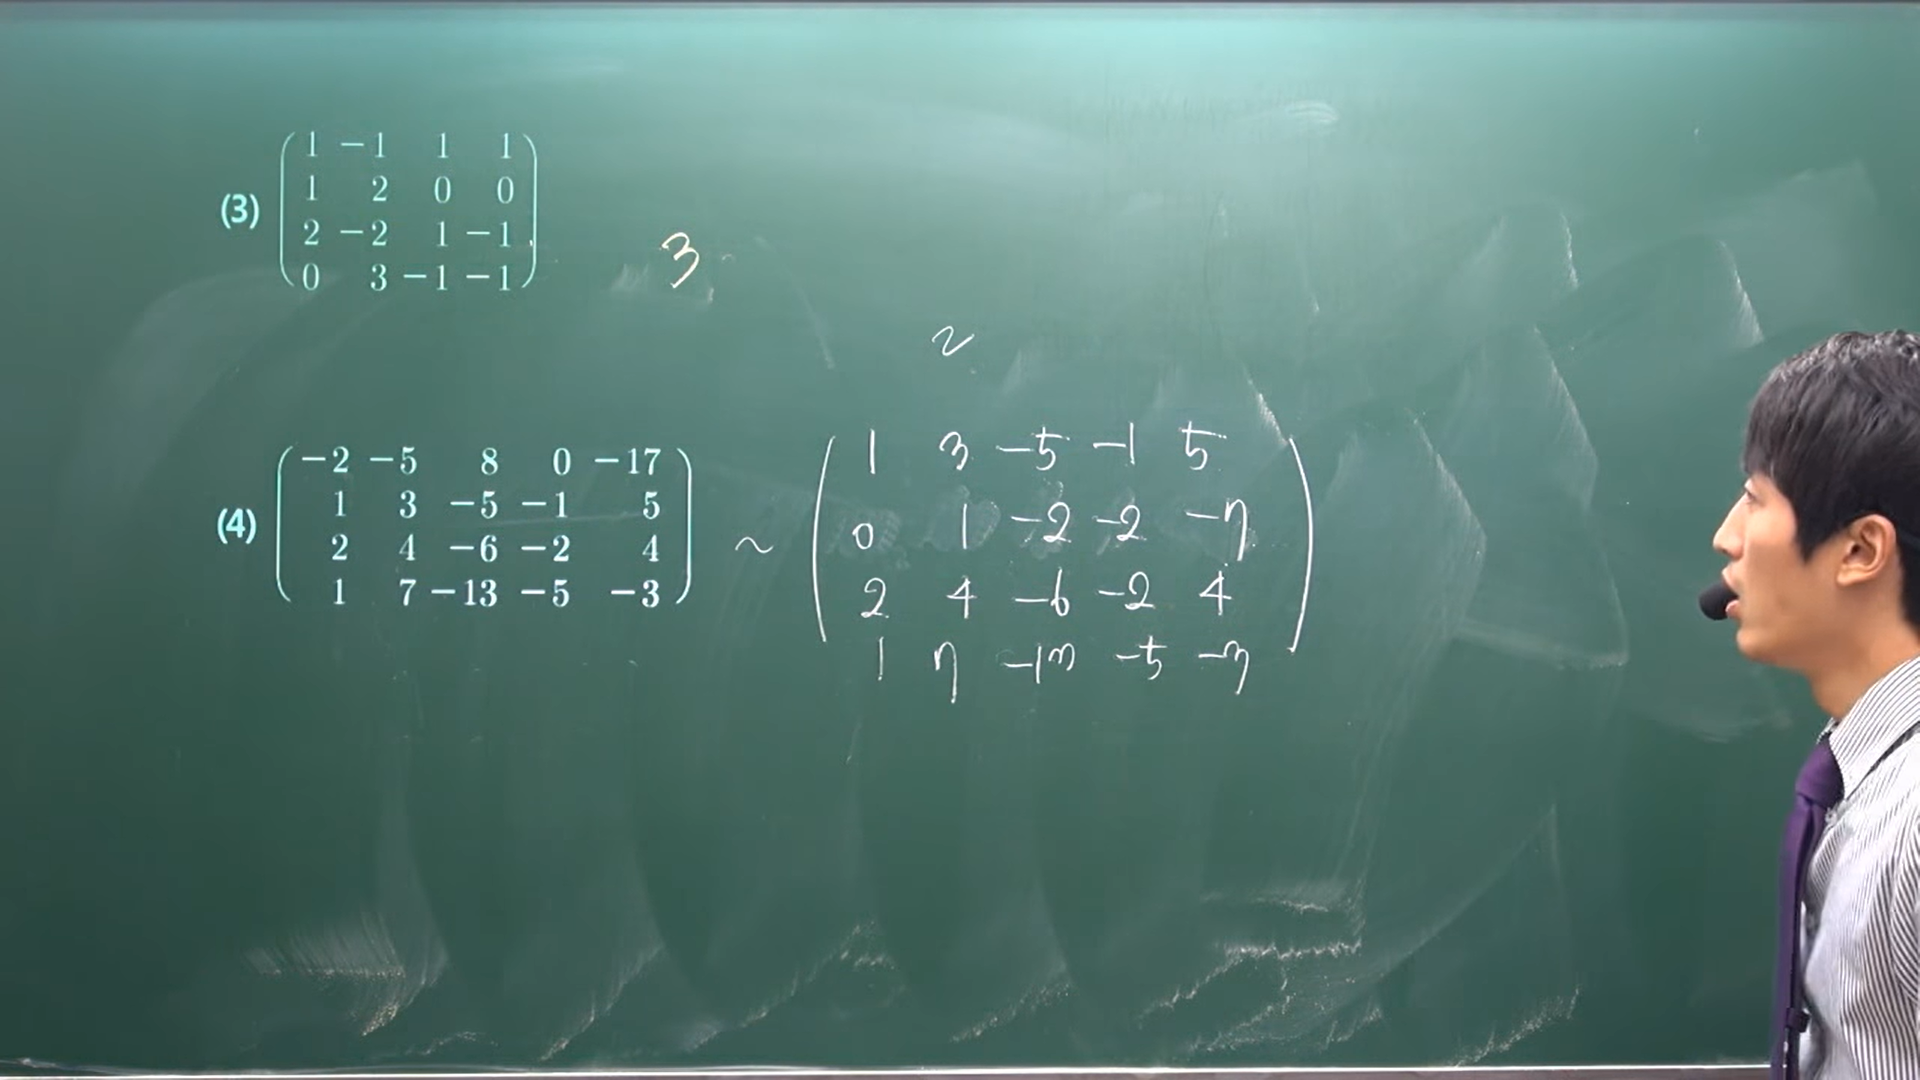 (3)
1 -1 1 1
1 2 0 0
2 -2 1 -1
0 3 -1 -1
3
~
(4)
-2 -5 8 0 -17
1 3 -5 -1 5
2 4 -6 -2 4
1 7 -13 -5 -3
~
1 3 -5 -1 5
0 1 -2 -2 -7
2 4 -6 -2 4
1 7 -13 -5 -3